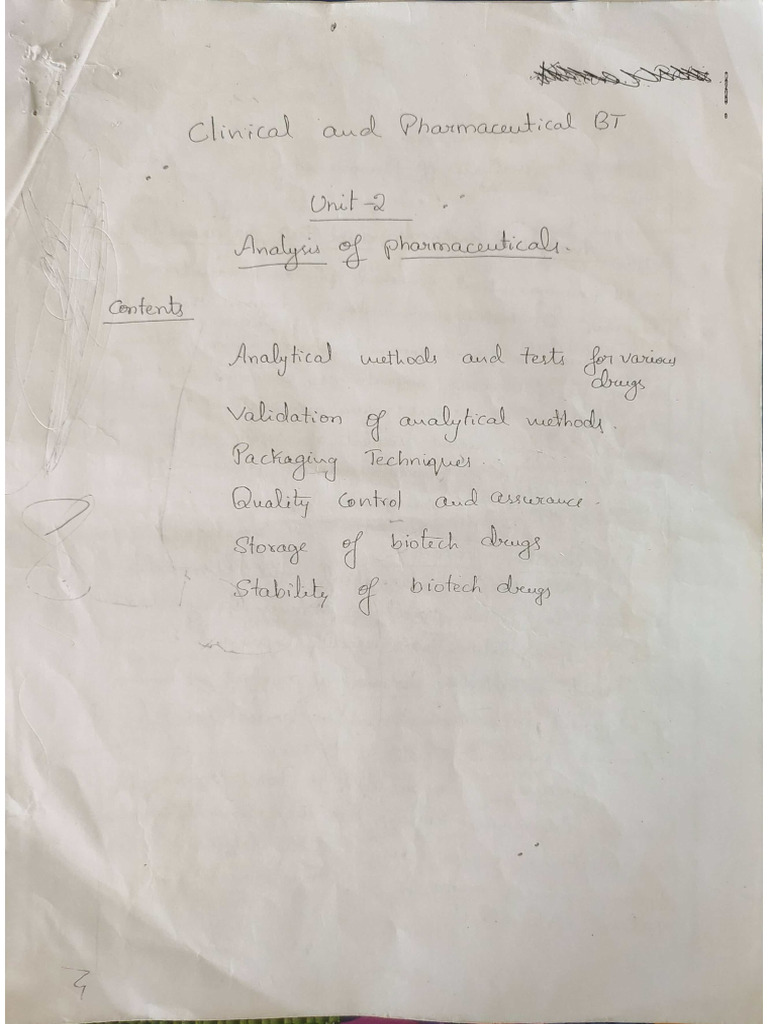 Clinical and Pharmaceutical BT
Unit-2
Analysis of pharmaceuticals.
Contents
Analytical methods and tests for various
drugs
Validation of analytical methods.
Packaging Techniques.
Quality control and assurance.
Storage of biotech drugs
Stability of biotech drugs